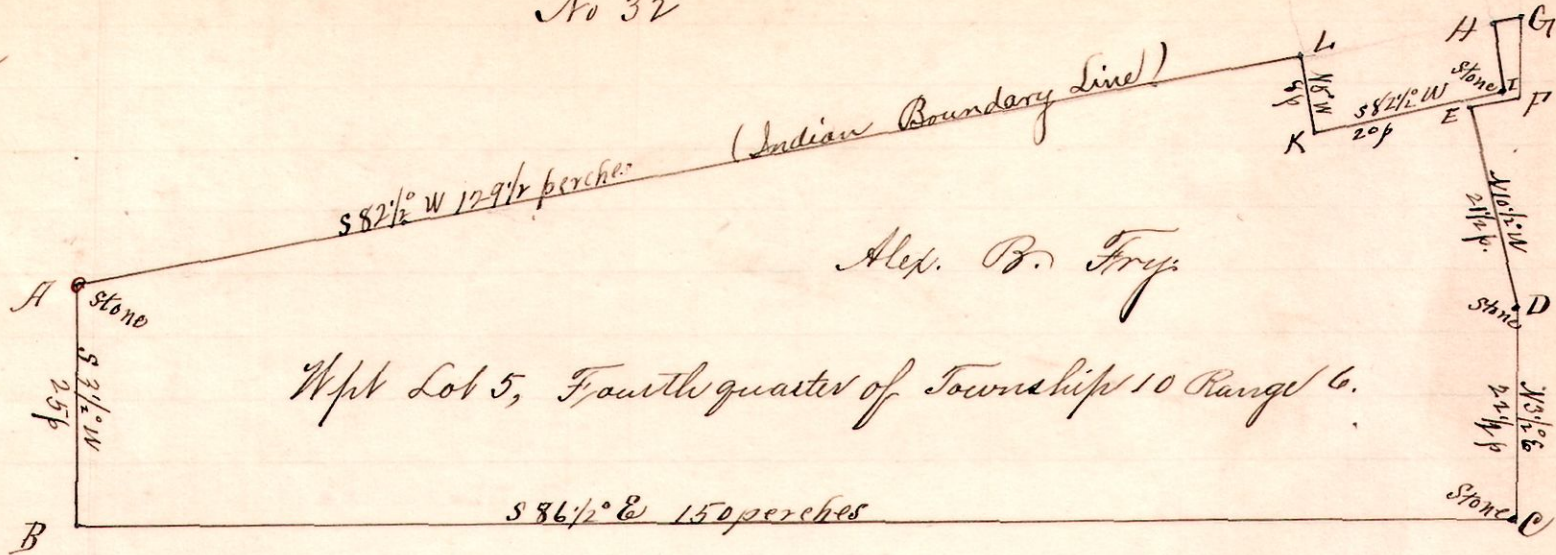 No 32
H G
L
Stone I F
S 82 1/2° W E
20p
K
N 8° W
8p
(Indian Boundary Line)
S 82 1/2° W 129 1/2 perches
N 10 1/2° W
21 1/2 p.
Alex. B. Fry.
A Stone
Stone D
S 3 1/2° W
25p
Wpt Lot 5, Fourth quarter of Township 10 Range 6.
N 3 1/2° E
22 1/2 p
S 86 1/2° E 150 perches
B
Stone C